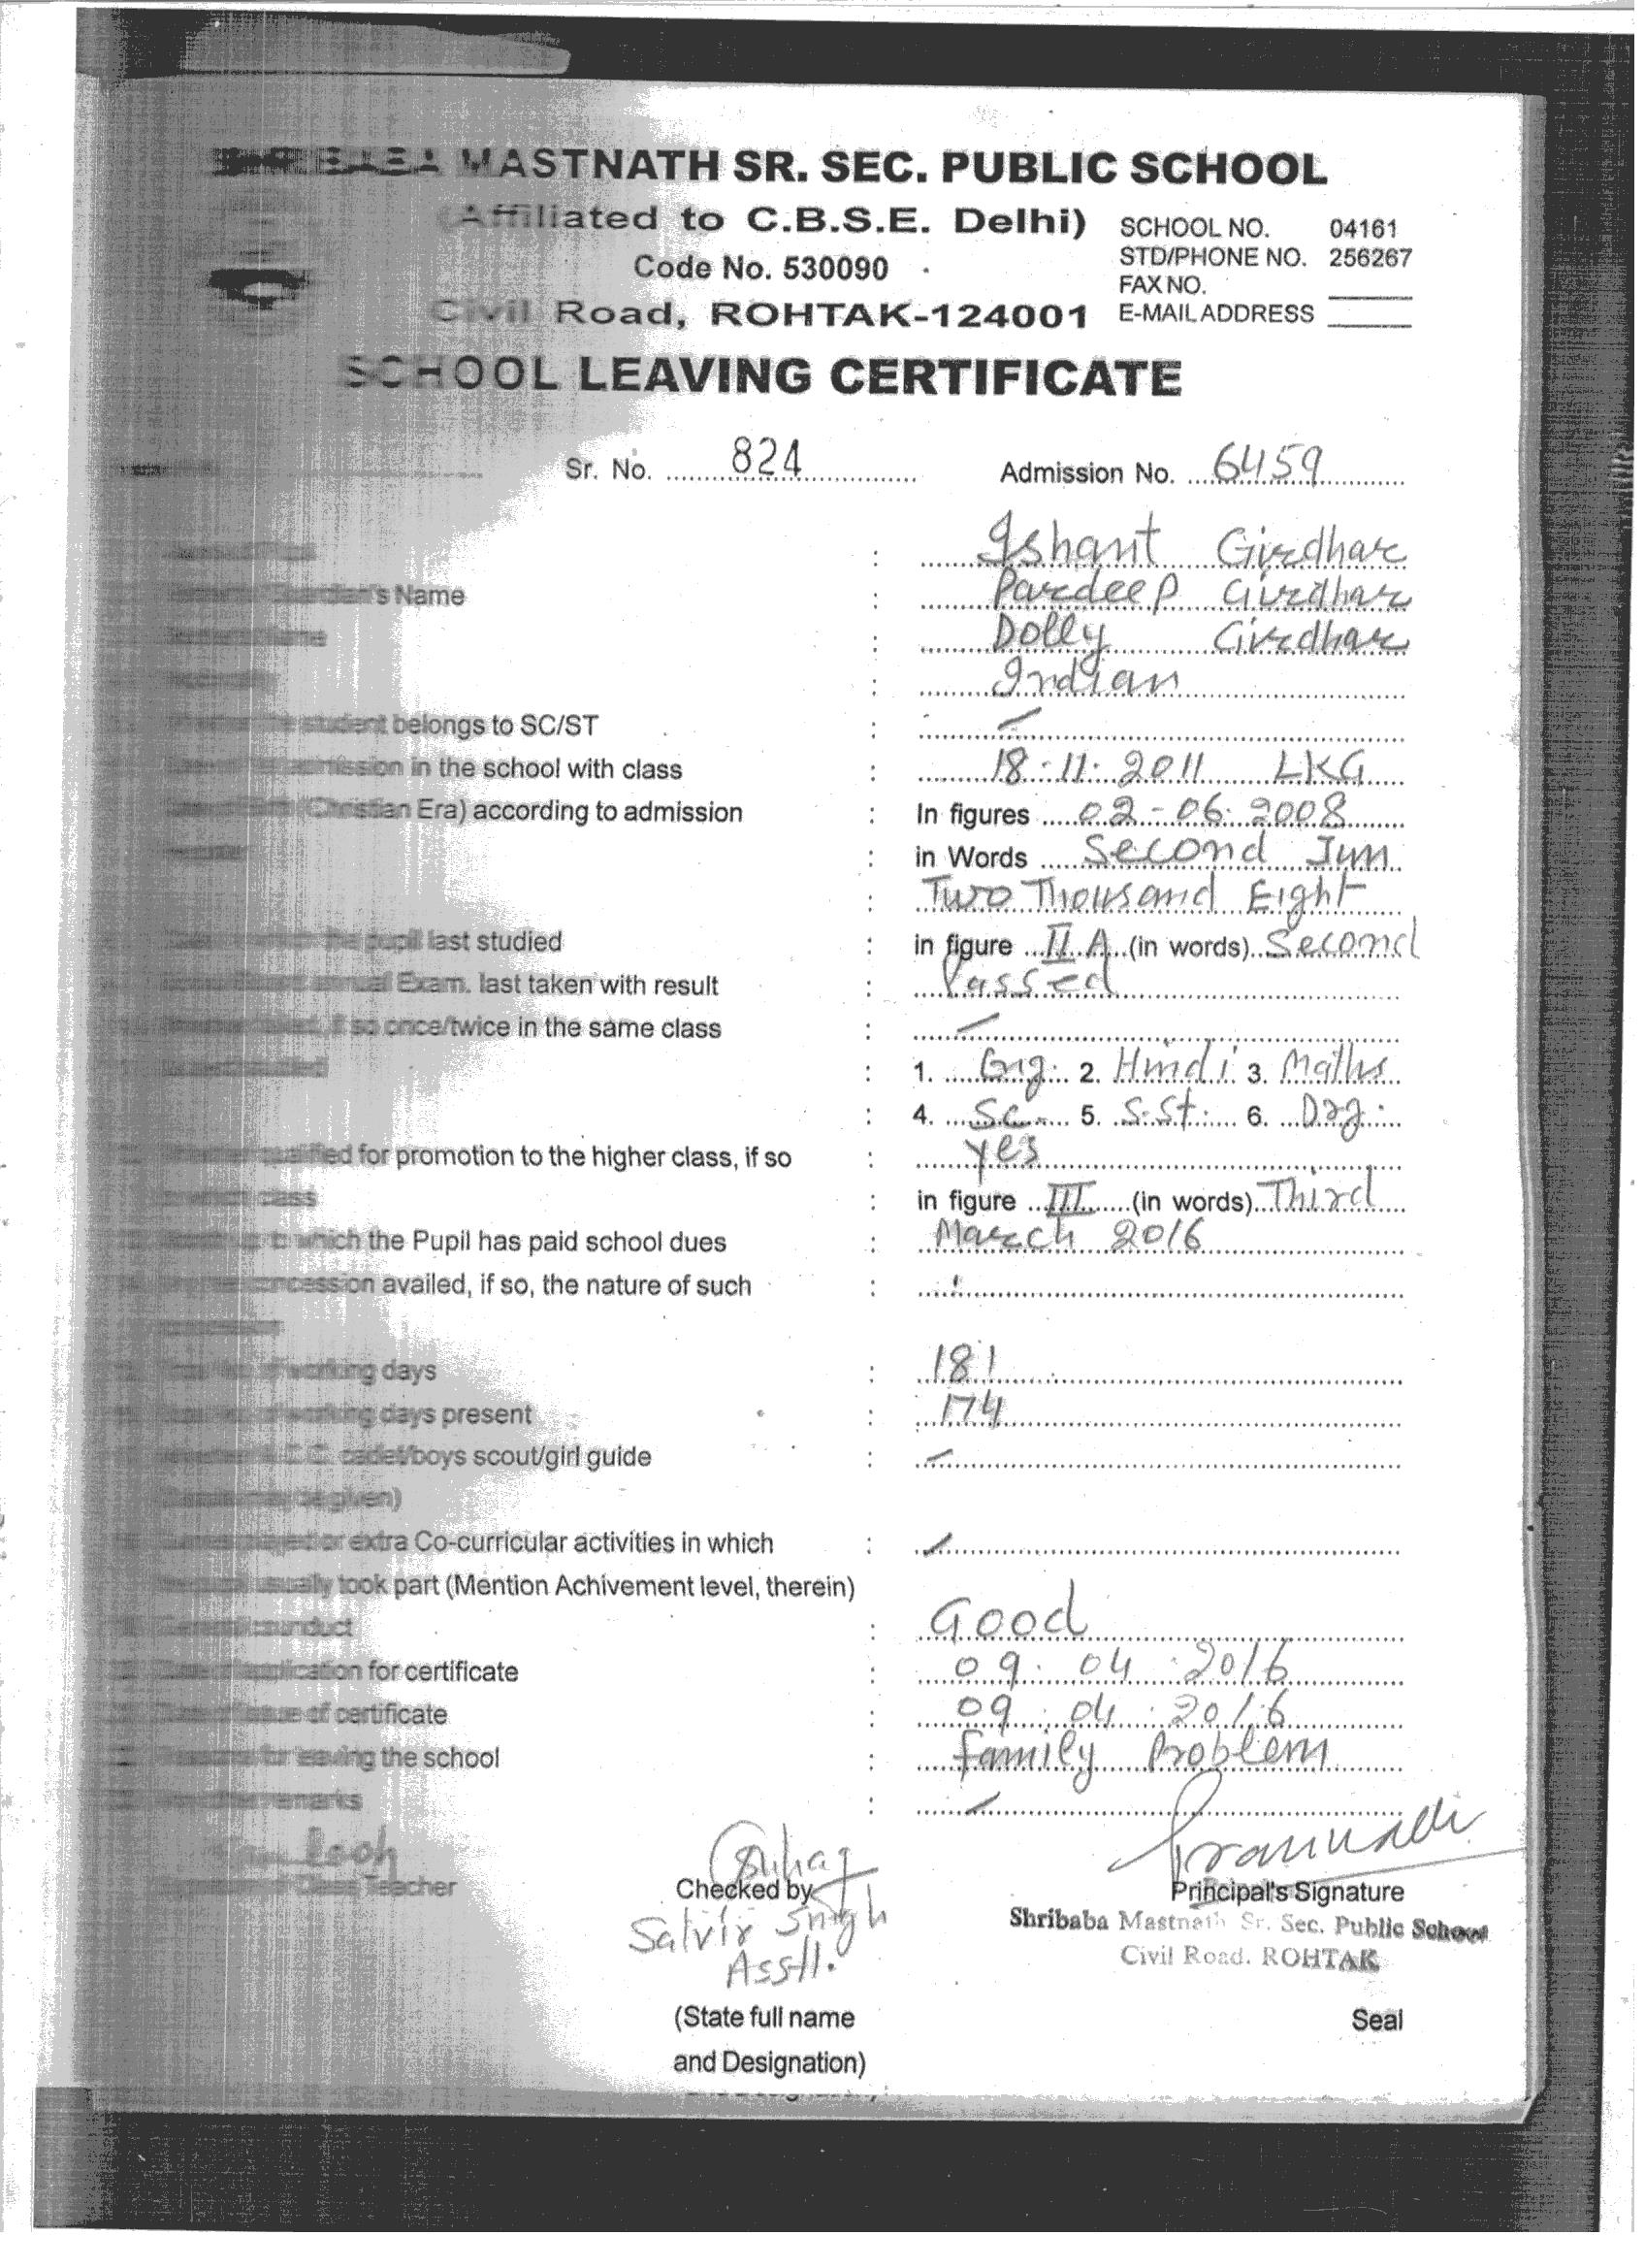 BABA MASTNATH SR. SEC. PUBLIC SCHOOL
(Affiliated to C.B.S.E. Delhi)
SCHOOL NO. 04161
Code No. 530090
STD/PHONE NO. 256267
FAX NO.
Civil Road, ROHTAK-124001
E-MAIL ADDRESS
SCHOOL LEAVING CERTIFICATE
Sr. No. 824 Admission No. 6459
: Ishant Girdhar
Guardian's Name : Pardeep Girdhar
Name : Dolly Girdhar
: Indian
the student belongs to SC/ST :
admission in the school with class : 18.11.2011 LKG
(Christian Era) according to admission : In figures 02-06.2008
: in Words Second Jun
: Two Thousand Eight
the pupil last studied : in figure II A (in words) Second
annual Exam. last taken with result : Passed
if so once/twice in the same class :
: 1. Eng. 2. Hindi 3. Maths
: 4. Sc. 5. S.St. 6. Drg.
qualified for promotion to the higher class, if so : yes
class : in figure III (in words) Third
which the Pupil has paid school dues : March 2016
concession availed, if so, the nature of such :
working days : 181
working days present : 174
cadet/boys scout/girl guide :
be given)
or extra Co-curricular activities in which :
usually took part (Mention Achivement level, therein)
conduct : Good
application for certificate : 09.04.2016
issue of certificate : 09.04.2016
for leaving the school : family Problem
remarks :
Class Teacher
Checked by
Principal's Signature
Satvir Singh
Asstt.
Shribaba Mastnath Sr. Sec. Public School
Civil Road. ROHTAK
(State full name
and Designation)
Seal